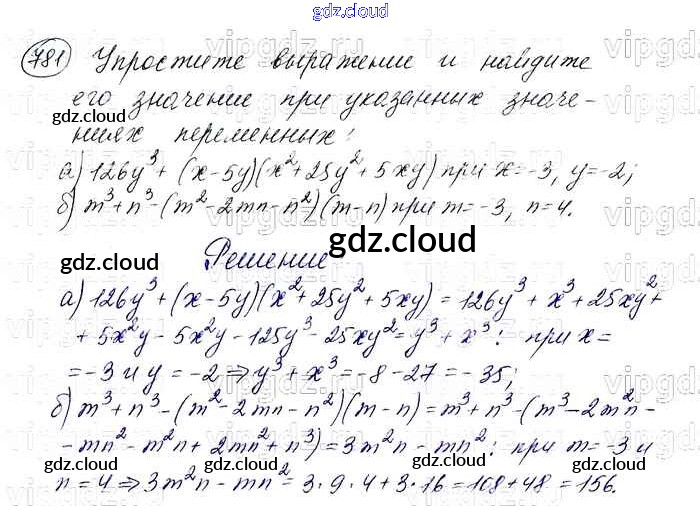 gdz.cloud
781 Упростите выражение и найдите
его значение при указанных значе-
ниях переменных:
а) 126y³ + (x-5y)(x²+25y²+5xy) при x=-3, y=-2;
б) m³+n³-(m²-2mn-n²)(m-n) при m=-3, n=4.
Решение
а) 126y³+(x-5y)(x²+25y²+5xy) = 126y³+x³+25xy²+
+5x²y-5x²y-125y³-25xy²=y³+x³: при x=
=-3 и y=-2⇒y³+x³=-8-27=-35;
б) m³+n³-(m²-2mn-n²)(m-n)=m³+n³-(m³-2m²n-
-mn²-m²n+2mn²+n³)=3m²n-mn²: при m=-3 и
n=4⇒3m²n-mn²=3·9·4+3·16=108+48=156.